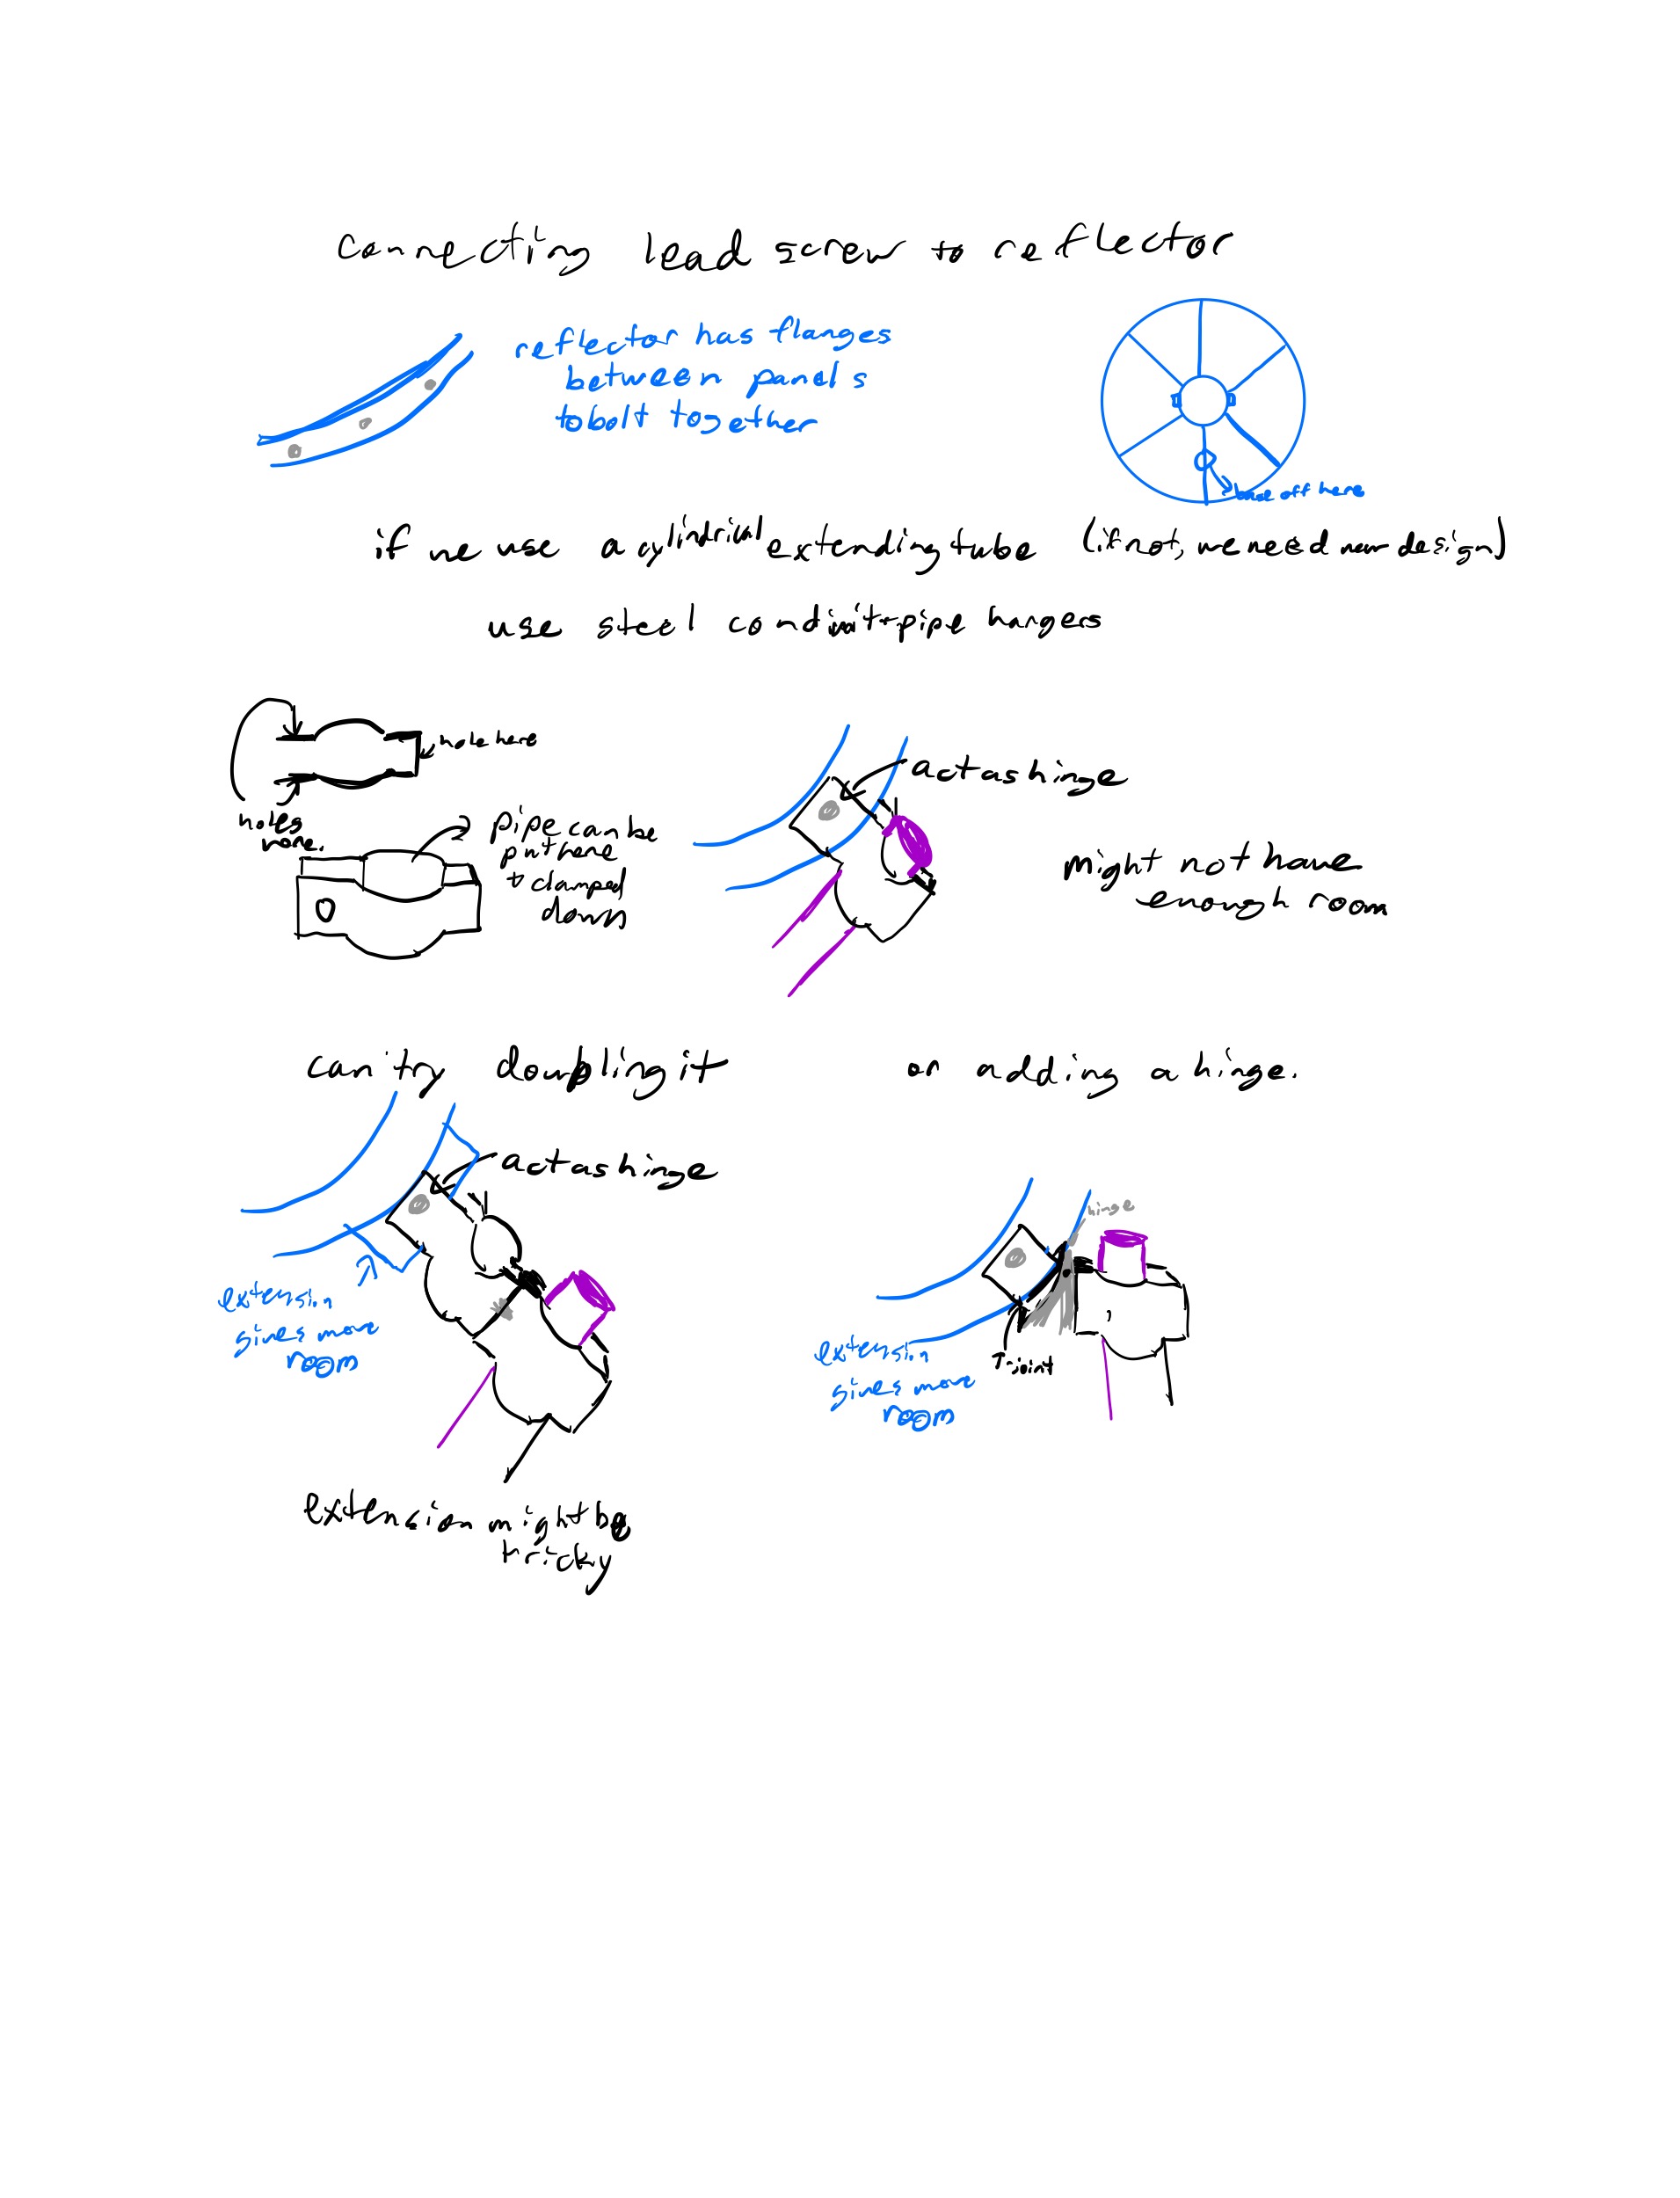 connecting lead screw to reflector
reflector has flanges
between panels
to bolt together
base off here
if we use a cylindrical extending tube (if not, we need new design)
use steel conduit + pipe hangers
hole here
holes
here.
pipe can be
put here
+ clamped
down
act as hinge
might not have
enough room
can try doubling it
or adding a hinge.
act as hinge
extension
gives more
room
hinge
T-joint
extension
gives more
room
extension might be
tricky